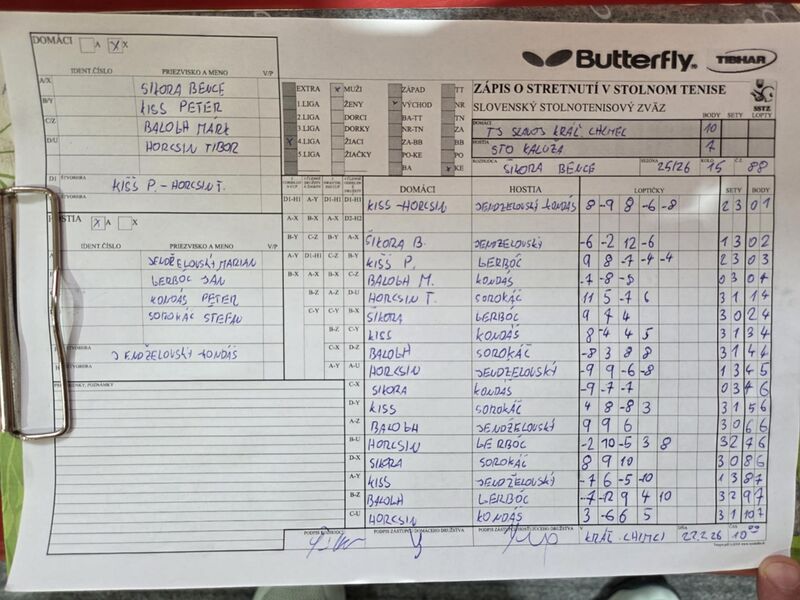 DOMÁCI A X X
IDENT ČÍSLO PRIEZVISKO A MENO V/P
A/X ŠIKORA BENCE
B/Y KISS PETER
C/Z BALOGH MÁRK
D/U HORCSIN TIBOR
D1 ŠTVORHRA KISŠ P. - HORCSIN T.
HOSTIA X A X
IDENT ČÍSLO PRIEZVISKO A MENO V/P
JENDŽELOVSKÝ MARIAN
GERBÓC JÁN
KONDÁS PETER
SOROKÁČ ŠTEFAN
ŠTVORHRA JENDŽELOVSKÝ KONDÁS
POZNÁMKY
Butterfly TIBHAR
ZÁPIS O STRETNUTÍ V STOLNOM TENISE
SLOVENSKÝ STOLNOTENISOVÝ ZVÄZ
SSTZ
BODY SETY LOPTY
EXTRA X MUŽI ZÁPAD TT
1.LIGA ŽENY VÝCHOD NR
2.LIGA DORCI BA-TT TN
3.LIGA DORKY NR-TN ZA
X 4.LIGA ŽIACI ZA-BB BB
5.LIGA ŽIAČKY PO-KE PO
BA X KE
DOMÁCI TJ SLAVOJ KRÁĽ. CHLMEC 10
HOSTIA STO KALUŽA 7
ROZHODCA ŠIKORA BENCE SEZÓNA 25/26 KOLO 15 Č.Z. 88
DOMÁCI HOSTIA LOPTIČKY SETY BODY
D1-H1 KISS - HORCSIN JENDŽELOVSKÝ KONDÁS 8 -9 8 -6 -8 2 3 0 1
A-X ŠIKORA B. JENDŽELOVSKÝ -6 -2 12 -6 1 3 0 2
B-Y KISŠ P. GERBÓC 9 8 -7 -4 -4 2 3 0 3
C-Z BALOGH M. KONDÁS -7 -8 -5 0 3 0 4
D-U HORCSIN T. SOROKÁČ 11 5 -7 6 3 1 1 4
B-X ŠIKORA GERBÓC 9 7 4 3 0 2 4
C-Y KISS KONDÁS 8 -4 4 5 3 1 3 4
D-Z BALOGH SOROKÁČ -8 3 8 8 3 1 4 4
A-U HORCSIN JENDŽELOVSKÝ -9 9 -6 -8 1 3 4 5
C-X ŠIKORA KONDÁS -9 -7 -7 0 3 4 6
D-Y KISS SOROKÁČ 4 8 -8 3 3 1 5 6
A-Z BALOGH JENDŽELOVSKÝ 9 9 6 3 0 6 6
B-U HORCSIN GERBÓC -2 10 -5 3 8 3 2 7 6
D-X ŠIKORA SOROKÁČ 8 9 10 3 0 8 6
A-Y KISS JENDŽELOVSKÝ -7 6 -5 -10 1 3 8 7
B-Z BALOGH GERBÓC -7 -12 9 4 10 3 2 9 7
C-U HORCSIN KONDÁS 3 -6 6 5 3 1 10 7
PODPIS ROZHODCU PODPIS ZÁSTUPCU DOMÁCEHO DRUŽSTVA PODPIS ZÁSTUPCU HOSŤUJÚCEHO DRUŽSTVA V KRÁĽ. CHLMCI DŇA 22.2.26 ČAS 10 00